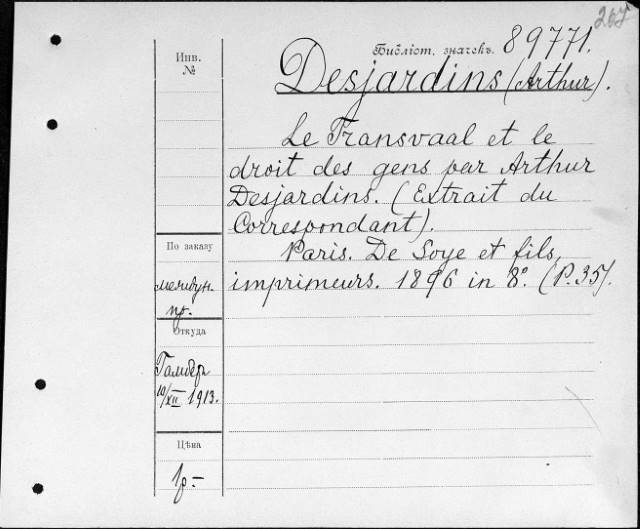 267
Библіот. значекъ. 89771.
Инв.
№
Desjardins (Arthur).
Le Transvaal et le
droit des gens par Arthur
Desjardins. (Extrait du
Correspondant).
Paris. De Soye et fils,
imprimeurs. 1896 in 8º. (P. 35).
По заказу
пр.
Откуда
10/XII 1913.
Цѣна
1р.-